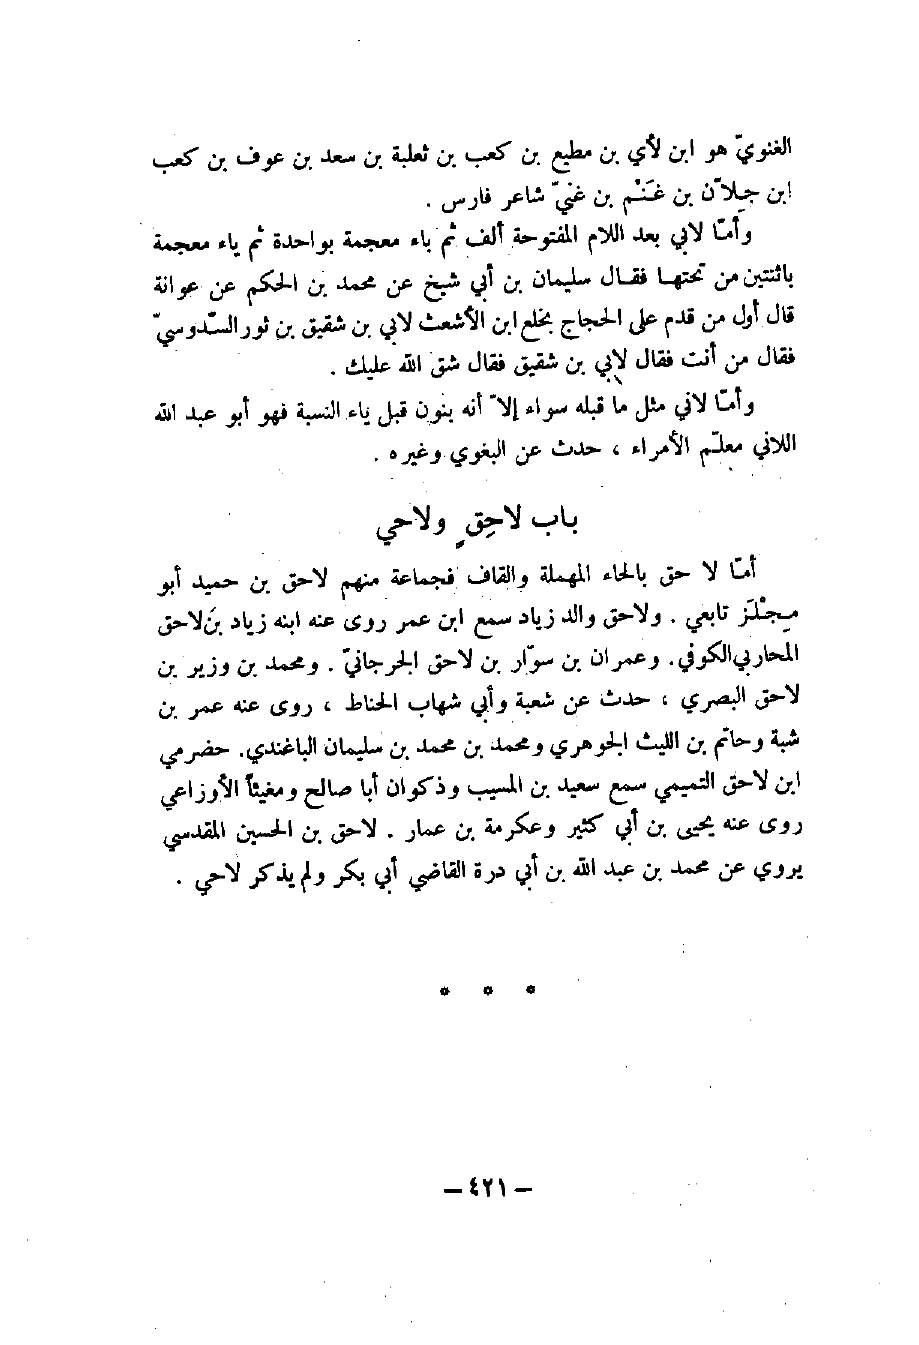 الغنويّ هو ابن لأي بن مطيع بن كعب بن ثعلبة بن سعد بن عوف بن كعب
ابن جِلاّن بن غَنْم بن غنيّ شاعر فارس .
وأمّا لابي بعد اللام المفتوحة ألف ثم باء معجمة بواحدة ثم ياء معجمة
باثنتين من تحتها فقال سليمان بن أبي شيخ عن محمد بن الحكم عن عوانة
قال أول من قدم على الحجاج بخلع ابن الأشعث لابي بن شقيق بن ثور السّدوسيّ
فقال من أنت فقال لابي بن شقيق فقال شق الله عليك .
وأمّا لاني مثل ما قبله سواء إلاّ أنه بنون قبل ياء النسبة فهو أبو عبد الله
اللاني معلّم الأمراء ، حدث عن البغوي وغيره .
باب لاحِقٍ ولاحي
أمّا لا حق بالحاء المهملة والقاف فجماعة منهم لاحق بن حميد أبو
مِجْلَز تابعي . ولاحق والد زياد سمع ابن عمر روى عنه ابنه زياد بن لاحق
المحاربي الكوفي . وعمران بن سوّار بن لاحق الجرجانيّ . ومحمد بن وزير بن
لاحق البصري ، حدث عن شعبة وأبي شهاب الحناط ، روى عنه عمر بن
شبة وحاتم بن الليث الجوهري ومحمد بن محمد بن سليمان الباغندي . حضرمي
ابن لاحق التميمي سمع سعيد بن المسيب وذكوان أبا صالح ومغيثاً الأوزاعي
روى عنه يحيى بن أبي كثير وعكرمة بن عمار . لاحق بن الحسين المقدسي
يروي عن محمد بن عبد الله بن أبي درة القاضي أبي بكر ولم يذكر لاحي .
* * *
– ٤٢١ –